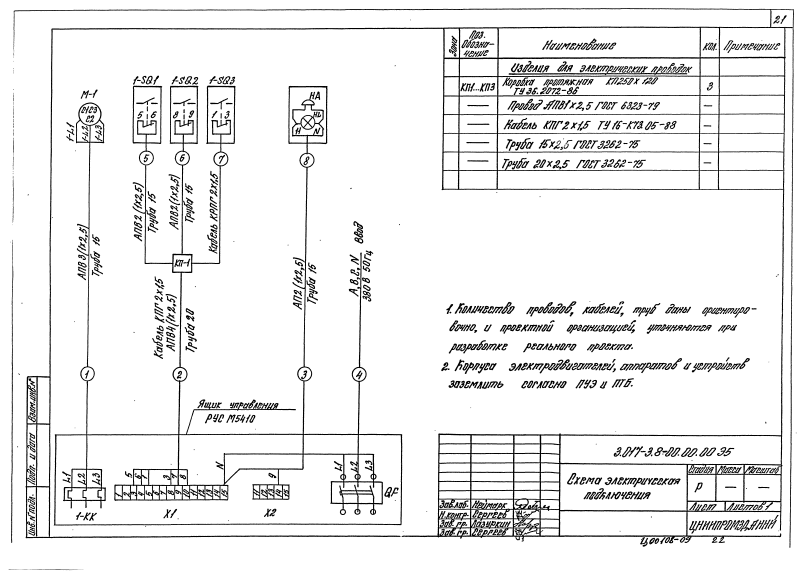 21
Зона
Поз. Обозначение
Наименование
кол.
Примечание
Изделия для электрических проводок
КП1...КП3
Коробка протяжная КП250х120
ТУ 36.2072-86
3
Провод АПВ1х2,5 ГОСТ 6323-79
—
Кабель КПГ 2х1,5 ТУ 16-К73.05-88
—
Труба 15х2,5 ГОСТ 3262-75
—
Труба 20х2,5 ГОСТ 3262-75
—
М-1
С2
1-L1
1-L2
1-L3
1-SQ1
5 6
1-SQ2
8 9
1-SQ3
1 3
НА
HL
Н N
5
6
7
8
АПВ2(1х2,5)
Труба 15
АПВ2(1х2,5)
Труба 15
Кабель КРПГ2х1,5
КП-1
АПВ3(1х2,5)
Труба 15
Кабель КПГ 2х1,5
АПВ4(1х2,5)
Труба 20
АП2(1х2,5)
Труба 15
А,В,С,N Ввод
380 В 50Гц
1
2
3
4
1. Количество проводов, кабелей, труб даны ориентиро-
вочно, и проектной организацией, уточняются при
разработке реального проекта.
2. Корпуса электродвигателей, аппаратов и устройств
заземлить согласно ПУЭ и ПТБ.
Ящик управления
РУС М5410
L1
L2
L3
1-КК
X1
N
9
X2
L1
L2
L3
QF
Взам.инв.№
Подп. и дата
Инв.№подл.
3.017-3.8-00.00.00 Э5
Схема электрическая
подключения
Стадия Масса Масштаб
Р — —
Лист Листов 1
ЦНИИПРОМЗДАНИЙ
Зав.лаб. Неймарк
Н.контр. Сергеев
Зав.гр. Лазуркин
Зав.гр. Сергеев
Ц00108-09 22